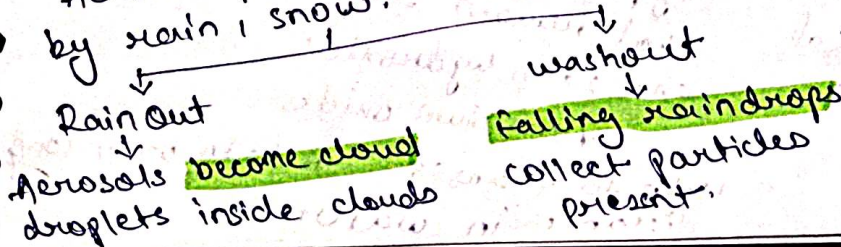 by rain, snow.
Rain Out
washout
Aerosols become cloud
droplets inside clouds
falling raindrops
collect particles
present.